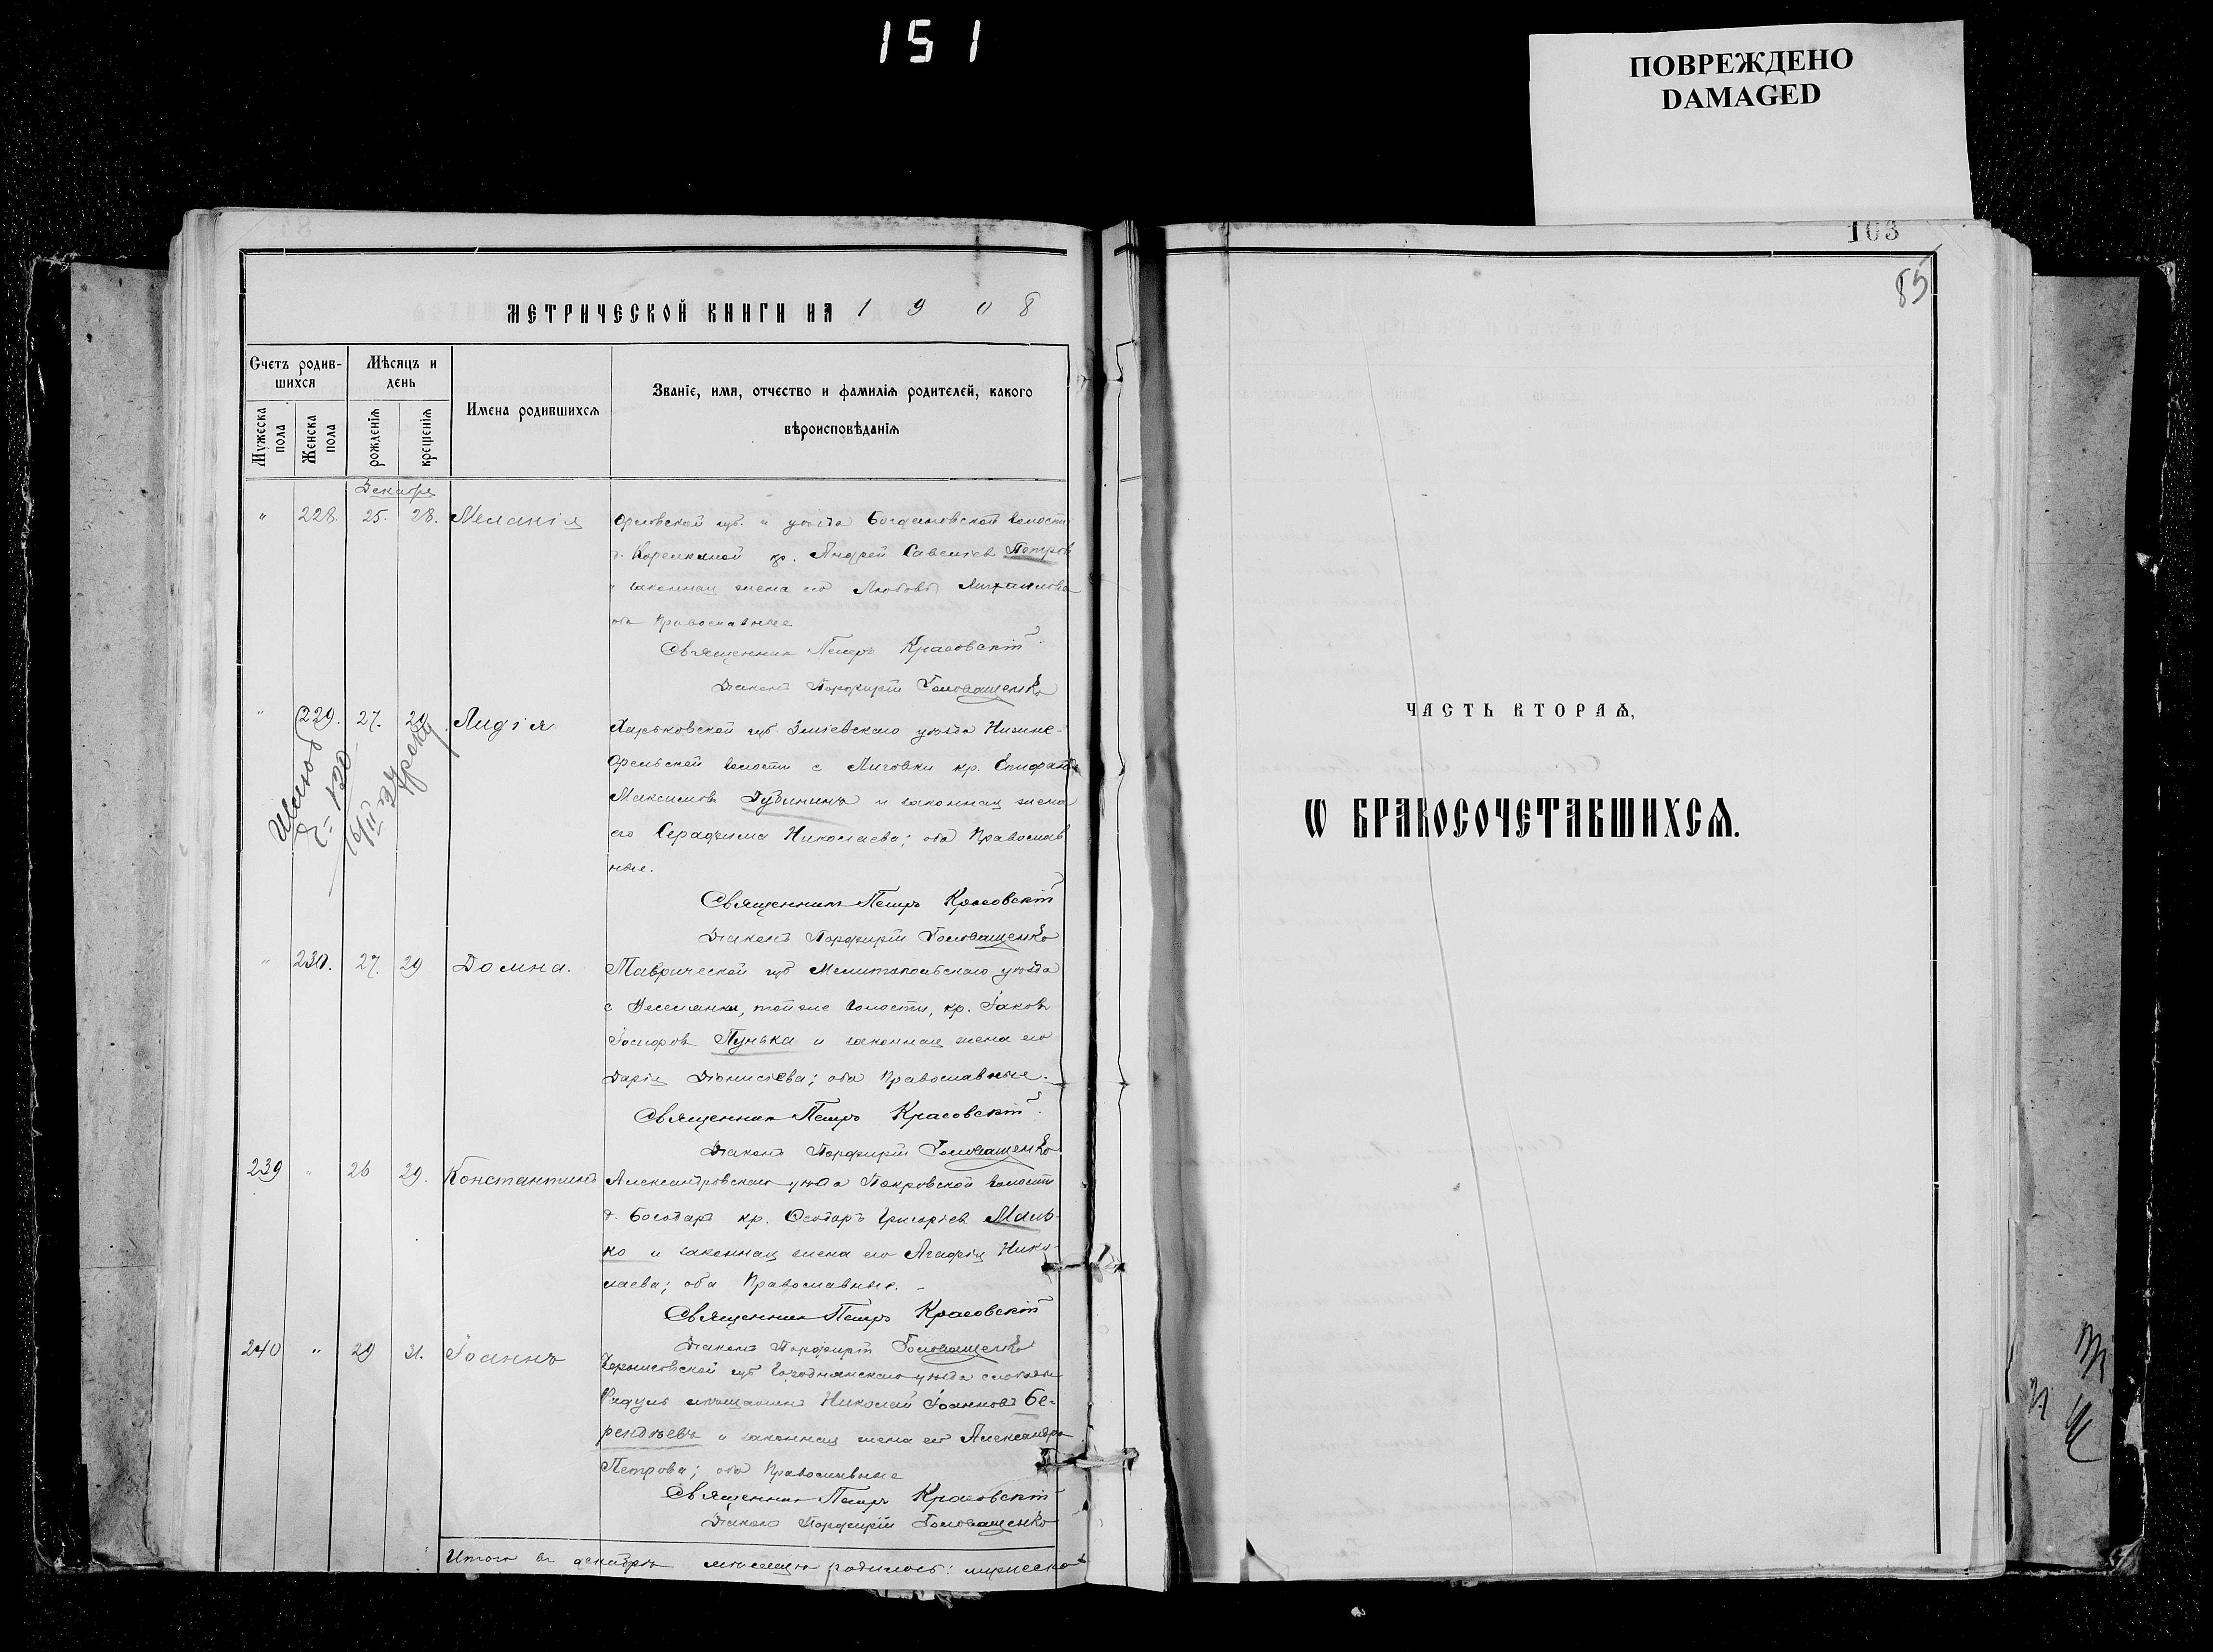 151
ПОВРЕЖДЕНО
DAMAGED
МЕТРИЧЕСКОЙ КНИГИ НА 1908
Счетъ родив-
шихся
Мѣсяцъ и
день
Имена родившихся
Званіе, имя, отчество и фамилія родителей, какого
вѣроисповѣданія
Мужеска
пола
Женска
пола
рожденія
крещенія
Декабря
" 228. 25. 28. Меланія
Орловской губ. и уѣзда Богдановской волости
кр. Андрей Савеліев Петров
законная жена его Любовь Михаилова
оба Православные
Священник Петръ Красовскій
Діаконъ Порфирій Головащенко
" 229. 27. 29 Лидія
Харьковской губ Зміевскаго уѣзда Нижне-
Орельской волости с Лиговки кр. Епифанъ
Максимов Дубининъ и законная жена
его Серафима Николаева; оба Православ
ные.
Священникъ Петръ Красовскій
Діаконъ Порфирій Головащенко
" 230. 27. 29 Домна.
Таврической губ Мелитопольскаго уѣзда
с Веселянки, той же волости, кр. Іаковъ
Пунька и законная жена его
Дарія Діонисіева; оба Православные.
Священник Петръ Красовскій.
Діаконъ Порфирій Головащенко
239 " 26 29. Константинъ
Александровскаго уѣзда Покровской волости
д. Богодаръ кр. Ѳеодоръ Григоріев Маль-
ко и законная жена его Агафія Нико-
лаева; оба Православные.
Священник Петръ Красовскій
Діаконъ Порфирій Головащенко
240 " 29 31. Іоаннъ
Черниговской губ Городнянскаго уѣзда слободы
Радуль мѣщанинъ Николай Іоанновъ Бе-
рендѣевъ и законная жена его Александра
Петрова; оба Православные
Священник Петръ Красовскій
Діаконъ Порфирій Головащенко
Итого въ декабрѣ мѣсяцѣ родилось: мужеска
103
85
ЧАСТЬ ВТОРАЯ,
Ѡ БРАКОСОЧЕТАВШИХСЯ.